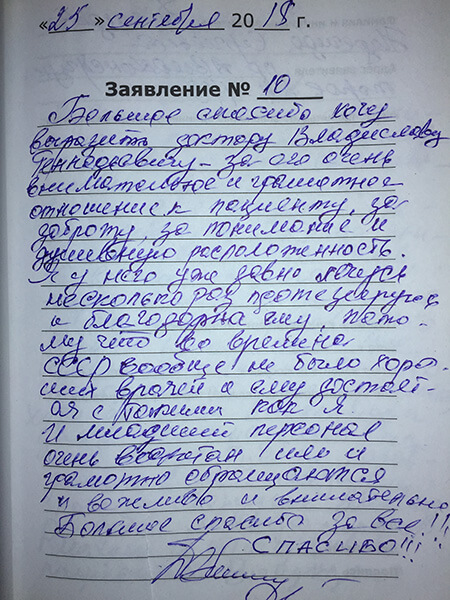 «25» сентября 2018 г.
Заявление № 10
Большое спасибо хочу
выразить доктору Владиславу
Геннадьевичу - за его очень
внимательное и грамотное
отношение к пациенту, за
доброту, за понимание и
душевную расположенность.
Я у него уже давно лечусь
несколько раз протезируюсь
и благодарна ему, пото-
му что во времена
СССР вообще не было хоро-
ших врачей а ему достаёт-
ся с такими как я
И младший персонал
очень воспитан или и
грамотно обращаются
и вежливо и внимательно
Большое спасибо за все!!!
СПАСИБО!!!